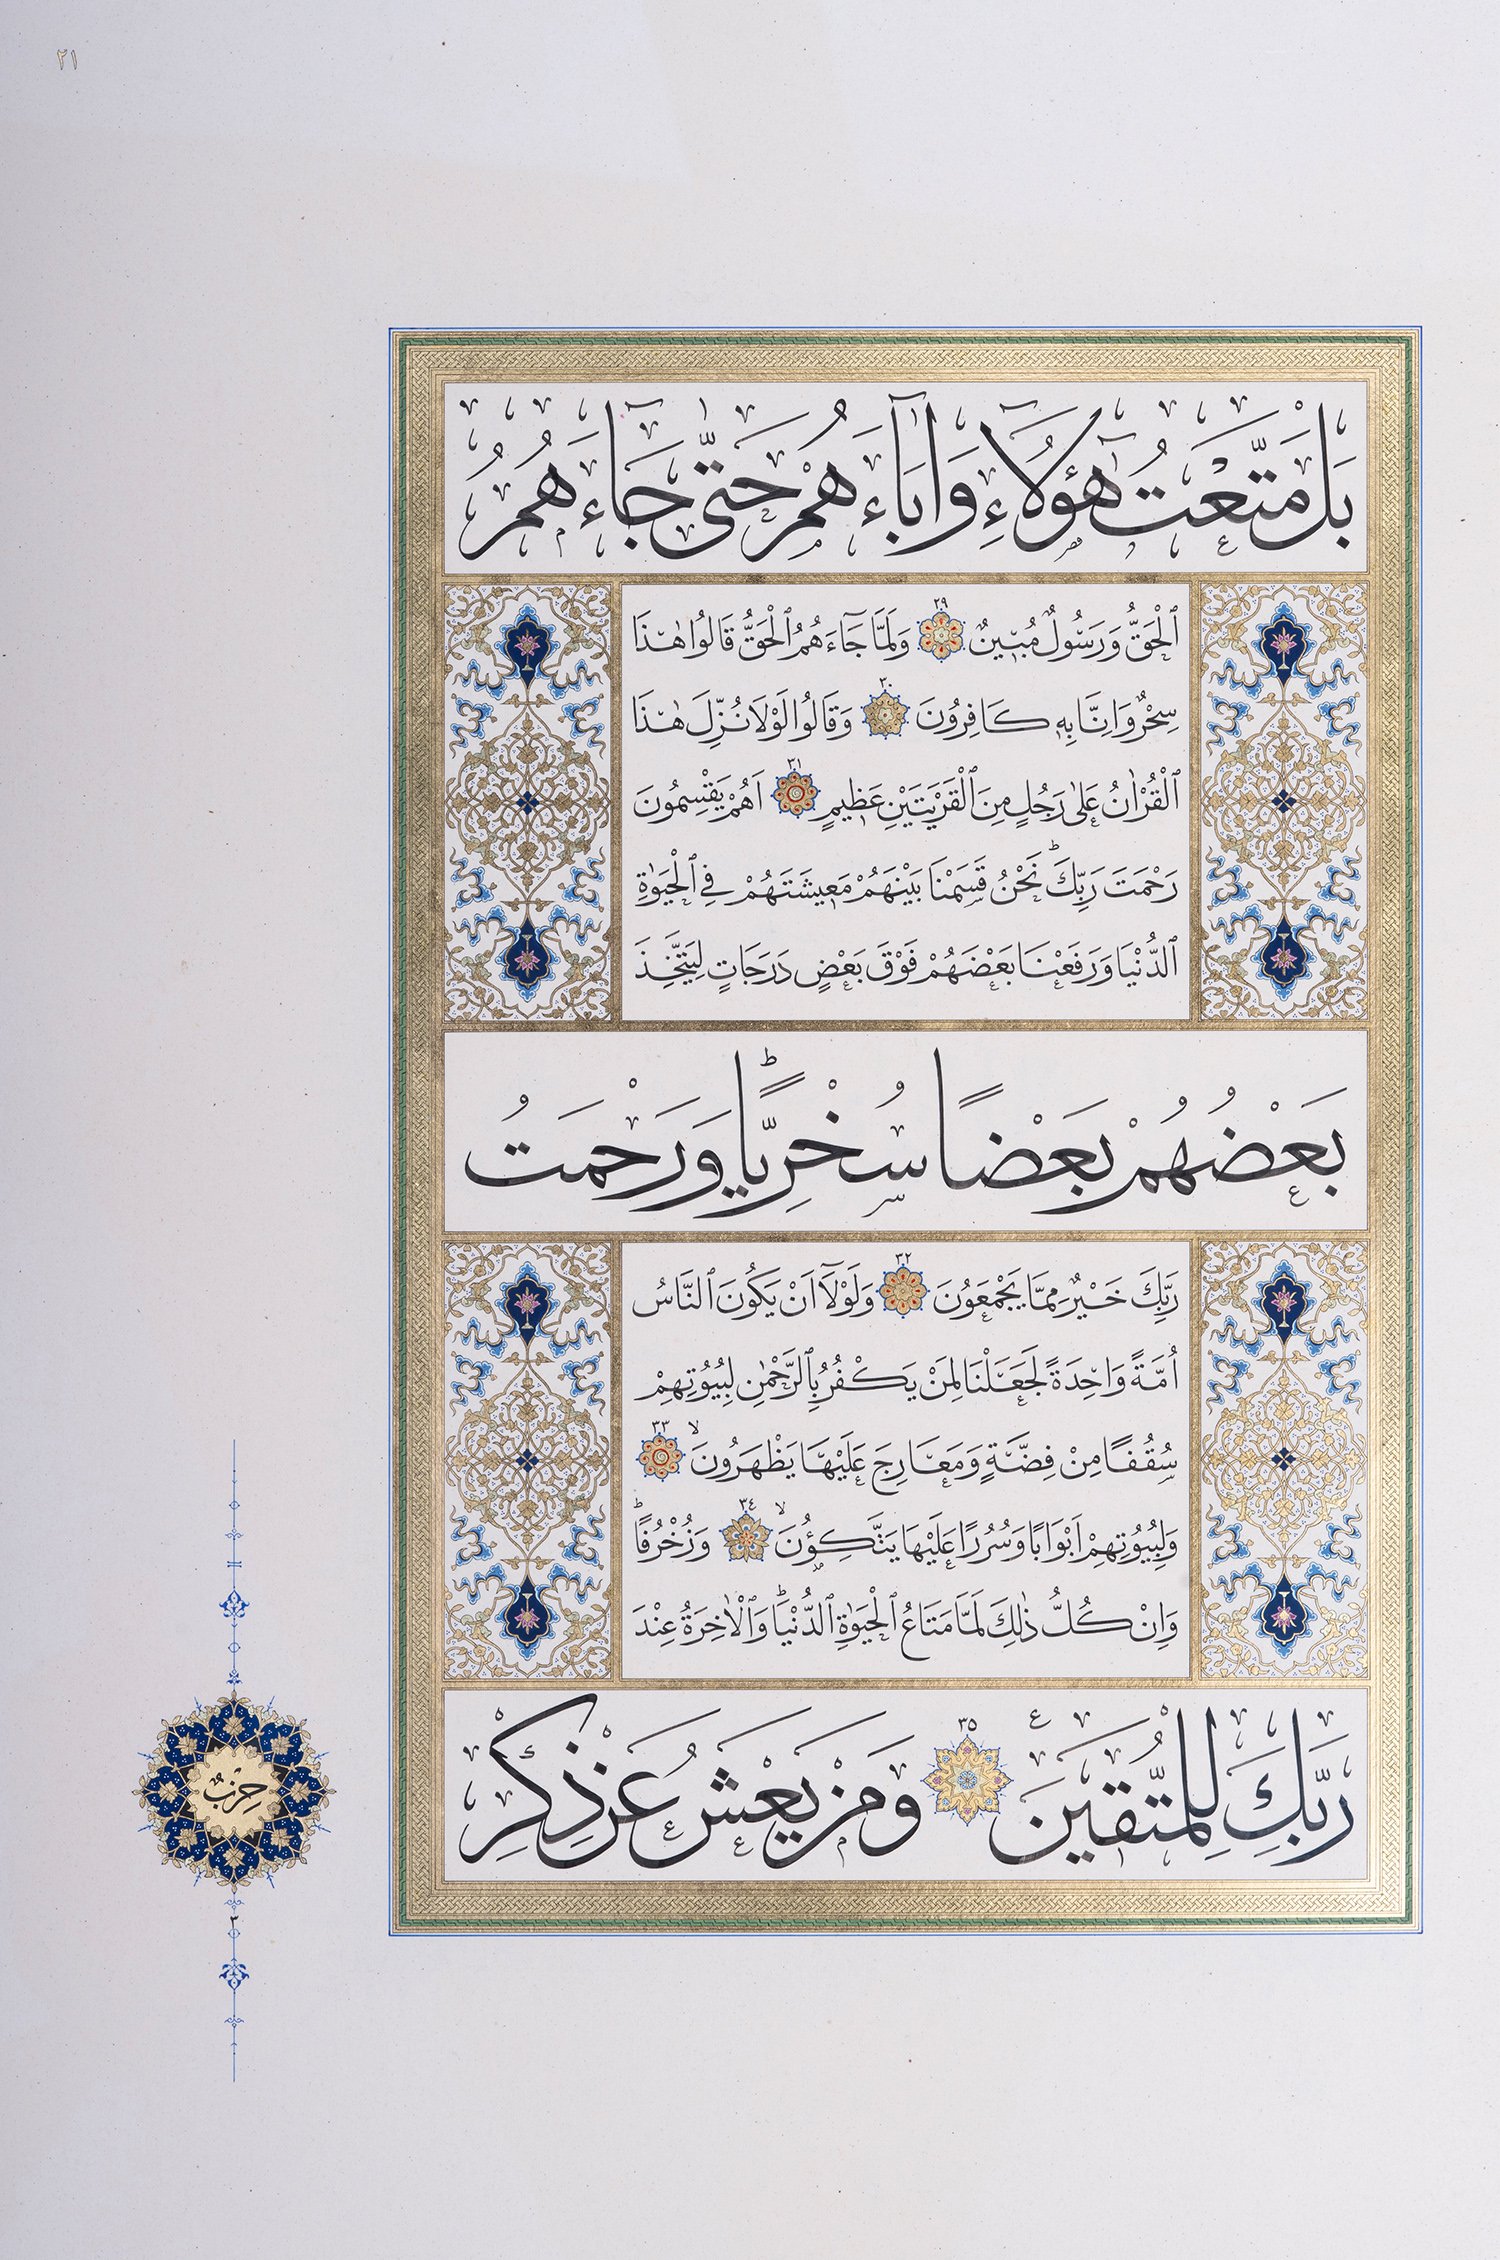 ٢١
بَلْ مَتَّعْتُ هٰٓؤُلَٓاءِ وَاٰبَٓاءَهُمْ حَتّٰى جَٓاءَهُمُ
الْحَقُّ وَرَسُولٌ مُب۪ينٌ ٢٩ وَلَمَّا جَٓاءَهُمُ الْحَقُّ قَالُوا هٰذَا
سِحْرٌ وَاِنَّا بِه۪ كَافِرُونَ ٣٠ وَقَالُوا لَوْلَا نُزِّلَ هٰذَا
الْقُرْاٰنُ عَلٰى رَجُلٍ مِنَ الْقَرْيَتَيْنِ عَظ۪يمٍ ٣١ اَهُمْ يَقْسِمُونَ
رَحْمَتَ رَبِّكَۜ نَحْنُ قَسَمْنَا بَيْنَهُمْ مَع۪يشَتَهُمْ فِي الْحَيٰوةِ
الدُّنْيَا وَرَفَعْنَا بَعْضَهُمْ فَوْقَ بَعْضٍ دَرَجَاتٍ لِيَتَّخِذَ
بَعْضُهُمْ بَعْضًا سُخْرِيًّاۜ وَرَحْمَتُ
رَبِّكَ خَيْرٌ مِمَّا يَجْمَعُونَ ٣٢ وَلَوْلَٓا اَنْ يَكُونَ النَّاسُ
اُمَّةً وَاحِدَةً لَجَعَلْنَا لِمَنْ يَكْفُرُ بِالرَّحْمٰنِ لِبُيُوتِهِمْ
سُقُفًا مِنْ فِضَّةٍ وَمَعَارِجَ عَلَيْهَا يَظْهَرُونَۙ ٣٣
وَلِبُيُوتِهِمْ اَبْوَابًا وَسُرُرًا عَلَيْهَا يَتَّكِؤُ۫نَۙ ٣٤ وَزُخْرُفًاۜ
وَاِنْ كُلُّ ذٰلِكَ لَمَّا مَتَاعُ الْحَيٰوةِ الدُّنْيَاۜ وَالْاٰخِرَةُ عِنْدَ
رَبِّكَ لِلْمُتَّق۪ينَ ع ٣٥ وَمَنْ يَعْشُ عَنْ ذِكْرِ
حِزْبٌ
٣